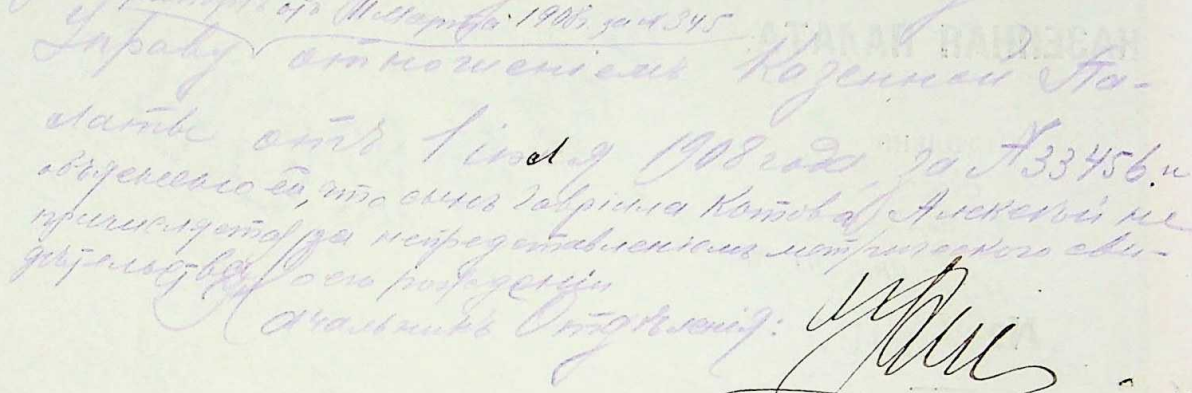 отъ 11 Марта 1908 г. за № 345
Управу отношеніемъ Казенной Па-
латы отъ 1 іюля 1908 года, за № 33456. и
объявлено ей, что сынъ Гавріила Котова Алексѣй не
причисляется за непредставленіемъ метрическаго сви-
дѣтельства о его рожденіи
Начальникъ Отдѣленія: